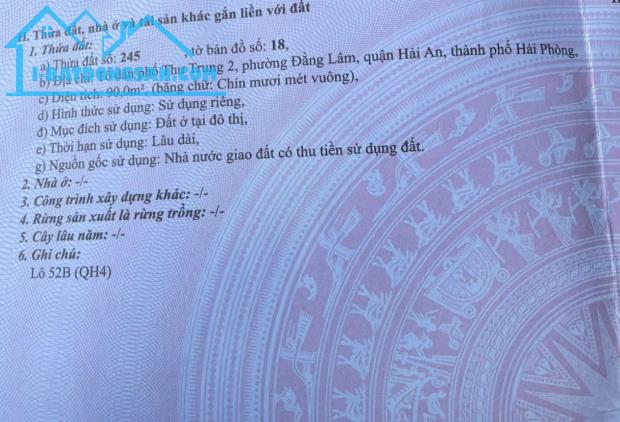 II. Thửa đất, nhà ở và tài sản khác gắn liền với đất
1. Thửa đất:
a) Thửa đất số: 245 , tờ bản đồ số: 18,
b) Địa chỉ: Tổ dân phố Thư Trung 2, phường Đằng Lâm, quận Hải An, thành phố Hải Phòng,
c) Diện tích: 90,0m², (bằng chữ: Chín mươi mét vuông),
d) Hình thức sử dụng: Sử dụng riêng,
đ) Mục đích sử dụng: Đất ở tại đô thị,
e) Thời hạn sử dụng: Lâu dài,
g) Nguồn gốc sử dụng: Nhà nước giao đất có thu tiền sử dụng đất.
2. Nhà ở: -/-
3. Công trình xây dựng khác: -/-
4. Rừng sản xuất là rừng trồng: -/-
5. Cây lâu năm: -/-
6. Ghi chú:
Lô 52B (QH4)